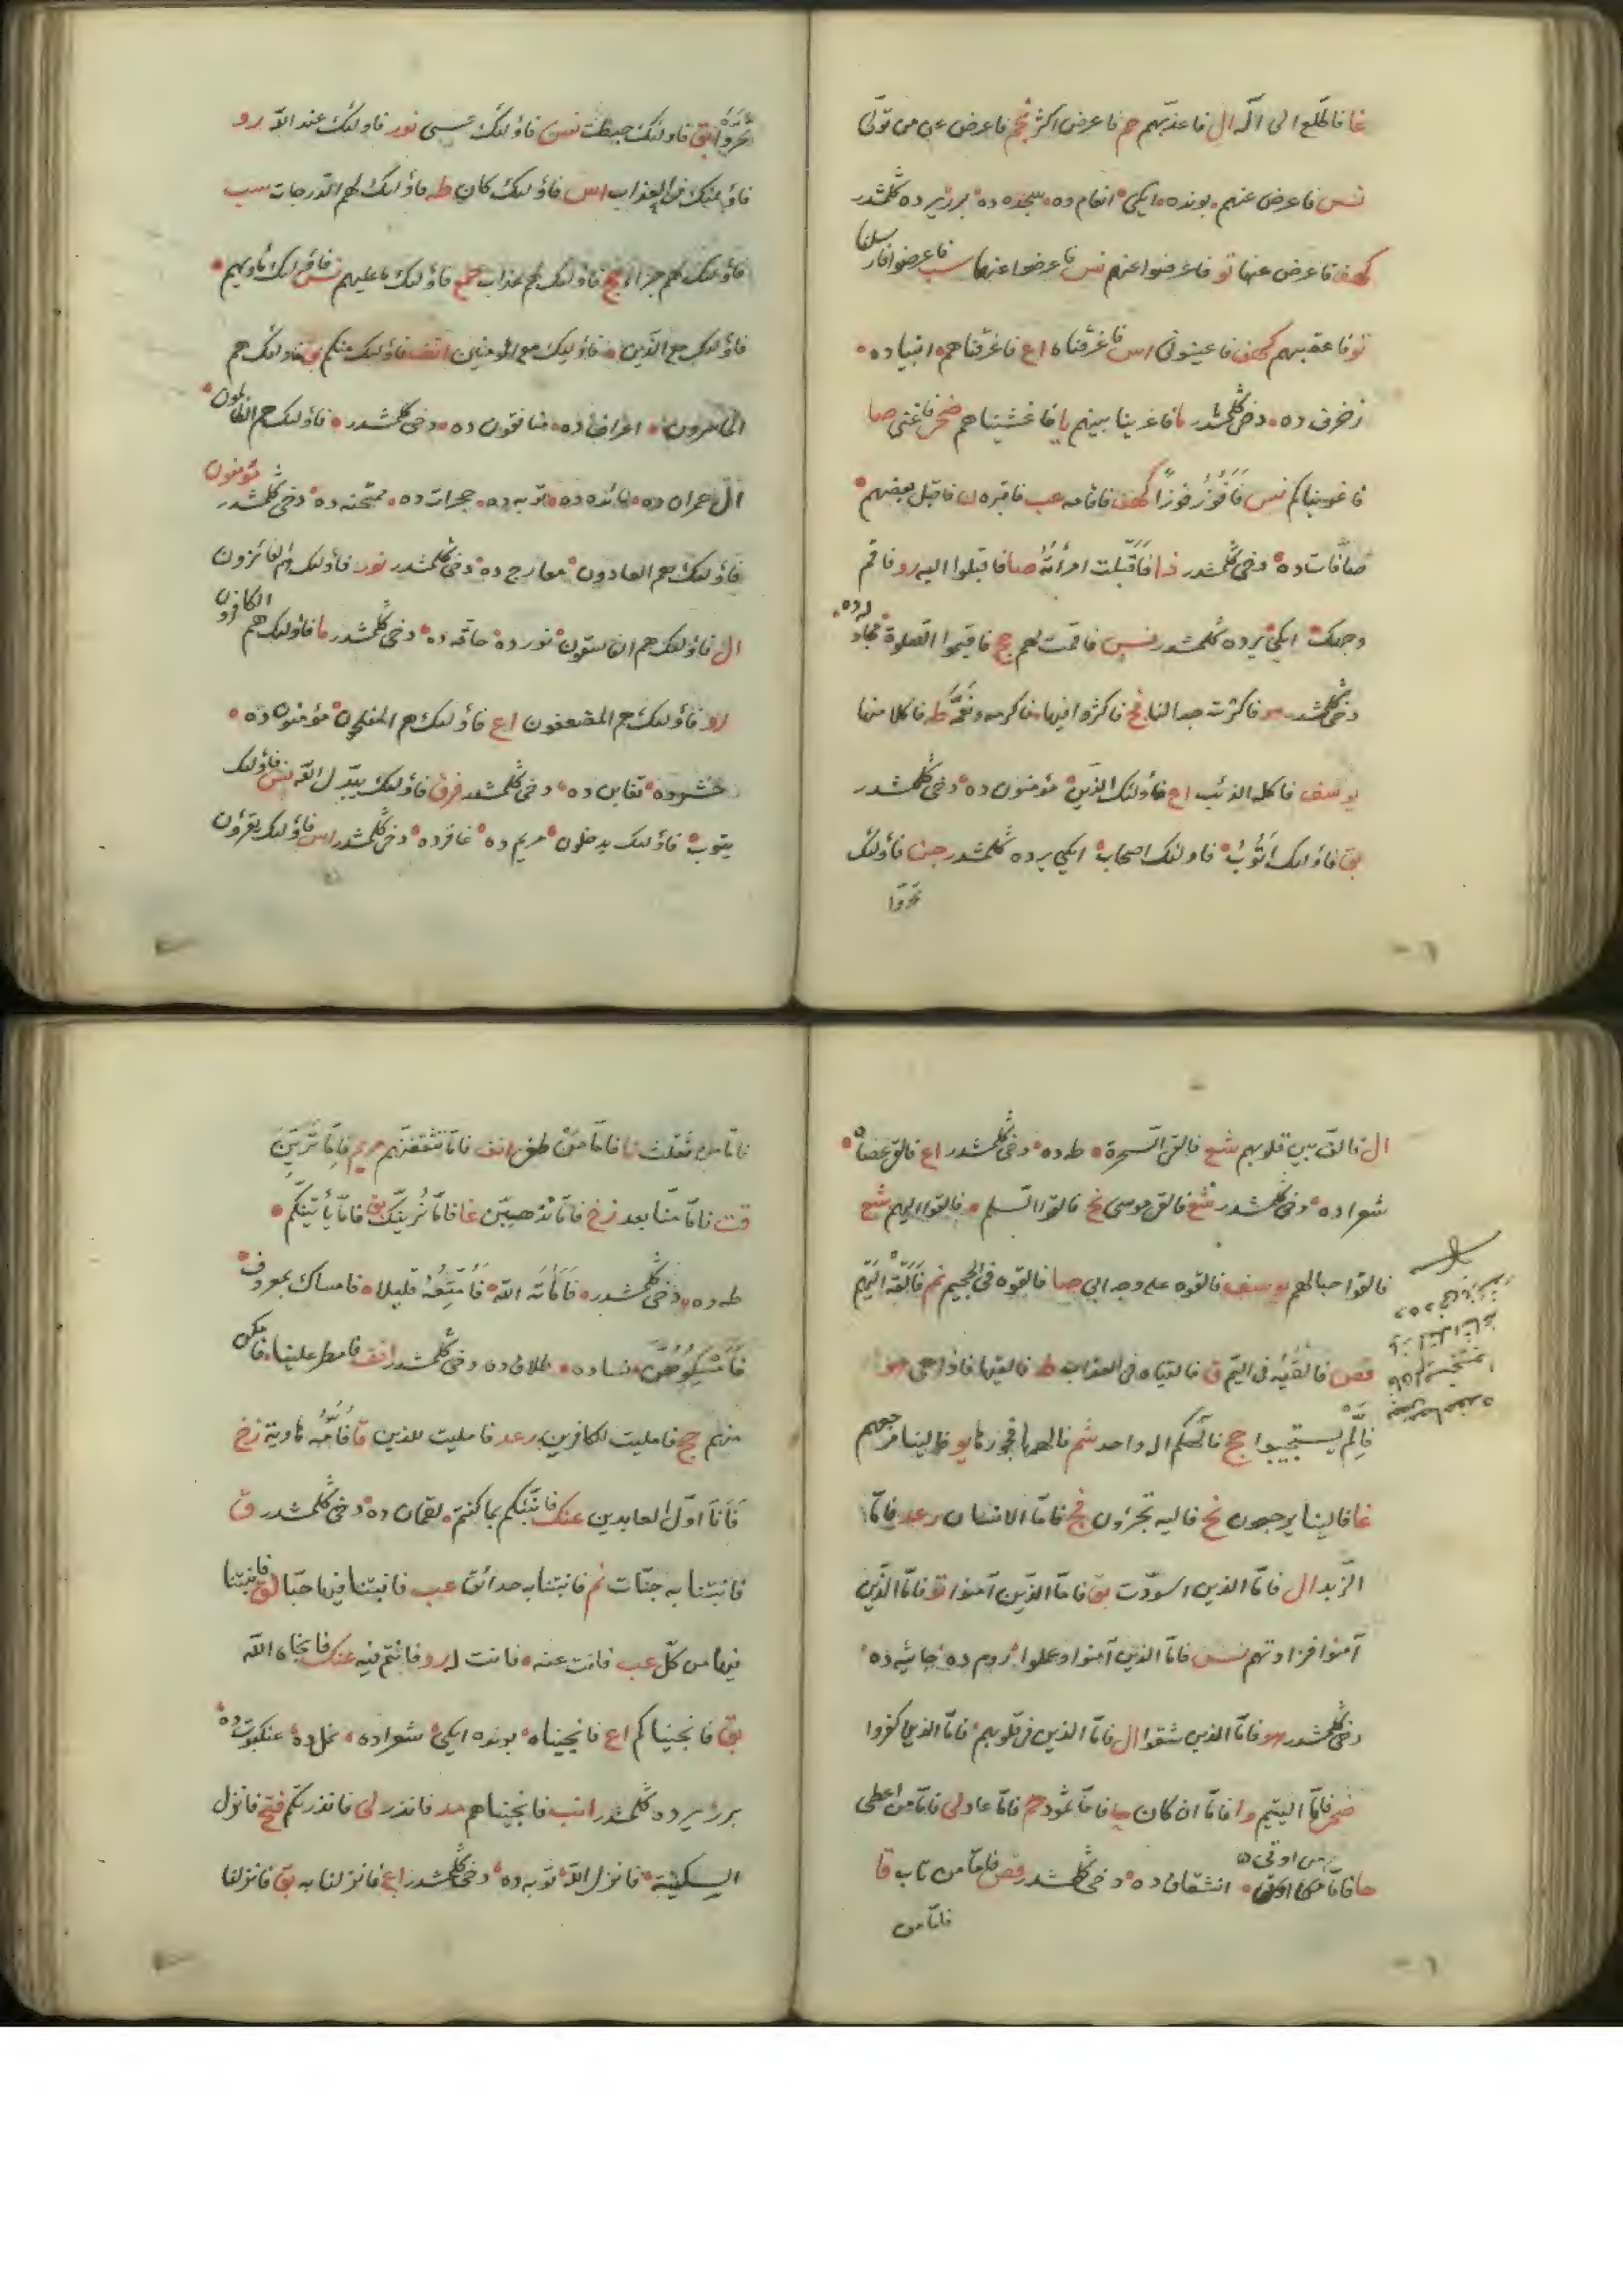 غا فاطلع الى اله ال فاعذبهم حم فاعرض اكثر نجم فاعرض عن من تولى
نس فاعرض عنهم بونده ايكى انعام ده سجده ده برر يرده كلمشدر
كهف فاعرض عنها تو فاعرضوا عنهم نس فاعرضوا عنهما سب فاعرضوا فارسلنا
تو فاعقبهم كهف فاعينونى اس فاغرقناه اع فاغرقناهم انبيا ده
زخرف ده دخى كلمشدر ما فاغرينا بينهم يا فاغشيناهم ضحى فاغنى صا
فاغويناكم نس فَاَفُوزَ فوزًا كهف فاقامه عب فاقبره ن فاقبل بعضهم
صافات ده دخى كلمشدر ذا فَاَقْبَلَت امرأتُهُ صا فاقبلوا اليه رو فاقم
وجهك ايكى يرده كلمشدر نس فاقمت لهم حج فاقيموا الصلوة مجادله ده
دخى كلمشدر هو فاكثرت جدالنا فج فاكثروا فيها فاكرمه ونعمه طه فاكلا منها
يوسف فاكله الذئب اع فاولئك الذين مؤمنون ده دخى كلمشدر
بق فاولئك اتوب فاولئك اصحاب ايكى يرده كلمشدر جن فاولئك
تحروا
تحروا بق فاولئك حبطت نس فاولئك عسى نور فاولئك عند الله رو
فاولئك فى العذاب اس فاولئك كان طه فاولئك لهم الدرجات سب
فاولئك لهم جزاء حج فاولئك لهم عذاب حمع فاولئك ما عليهم نس فاولئك مأويهم
فاولئك مع الذين فاولئك مع المؤمنين انف فاولئك منكم بق فاولئك هم
الخاسرون اعراف ده منافقون ده دخى كلمشدر فاولئك هم الظالمون
ال عمران ده مائده ده توبه ده حجرات ده ممتحنه ده دخى كلمشدر مؤمنون
فاولئك هم العادون معارج ده دخى كلمشدر نور فاولئك هم الفائزون
ال فاولئك هم الفاسقون نور ده دخى كلمشدر ما فاولئك هم الكافرون
رو فاولئك هم المضعفون اع فاولئك هم المفلحون مؤمنون ده
حشر ده تغابن ده دخى كلمشدر فرق فاولئك يبدل الله نس فاولئك
يتوب فاولئك يدخلون مريم ده غافر ده دخى كلمشدر اس فاولئك يقرؤن
ال فالف بين قلوبهم شع فالقى السحرة طه ده دخى كلمشدر اع فالقى عصاه
شعرا ده دخى كلمشدر شع فالقى موسى نح فالقوا السلم فالقوا اليهم شع
فالقوا حبالهم يوسف فالقوه على وجه ابى صا فالقوه فى الجحيم نم فَاَلْقِهْ اليهم
قص فالقيه فى اليم ق فالقياه فى العذاب طه فالقيها فاذا هى هو
فالم يستجيبوا حج فالهكم اله واحد شم فالهمها فجورها يو فالينا مرجعهم
غا فالينا يرجعون نح فاليه تجرؤن فج فاما الانسان رعد فاما
الزبد ال فاما الذين اسودت بق فاما الذين آمنوا تو فاما الذين
آمنوا فزادتهم نس فاما الذين آمنوا وعملوا روم ده جاثيه ده
دخى كلمشدر هو فاما الذين شقوا ال فاما الذين فى قلوبهم فاما الذين كفروا
ضحى فاما اليتيم وا فاما ان كان حا فاما ثمود حم فاما عاد لى فاما من اعطى
حا فاما من اوتى انشقاق ده دخى كلمشدر قص فاما من تاب قا
فاما من
فاما من ثقلت نا فاما من طغى انف فاما تثقفنهم مريم فاما ترين
قت فاما منا بعد زخ فاما نذهبن غا فاما نرينك بق فاما يأتينكم
طه ده دخى كلمشدر فاماته الله فَاُمَتِّعُهُ قليلا فامساك بمعروف
فامسكوهن نسا ده طلاق ده دخى كلمشدر انف فامطر علينا فامكن
منهم حج فامليت للكافرين رعد فامليت للذين قا فامه هاوية زخ
فانا اول العابدين عنك فانبئكم بما كنتم لقمان ده دخى كلمشدر ق
فانبتنا به جنات نم فانبتنا به حدائق عب فانبتنا فيها حبا لق فانبتنا
فيها من كل عب فانت عنه فانت له رو فانتم فيه عنك فانجاه الله
بق فانجيناكم اع فانجيناه بونده ايكى شعرا ده نمل ده عنكبوت ده
برر يرده كلمشدر انب فانجيناهم مد فانذر لى فانذرتكم فتح فانزل
السكينة فانزل الله توبه ده دخى كلمشدر اع فانزلنا به بق فانزلنا